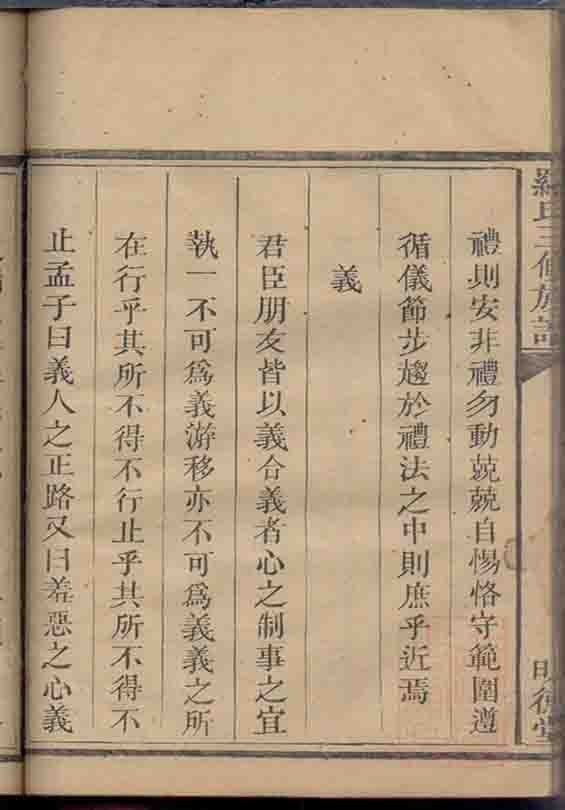 羅氏三修族譜
明德堂
禮則安非禮勿動兢兢自惕恪守範圍遵
循儀節步趨於禮法之中則庶乎近焉
義
君臣朋友皆以義合義者心之制事之宜
執一不可為義游移亦不可為義義之所
在行乎其所不得不行止乎其所不得不
止孟子曰義人之正路又曰羞惡之心義